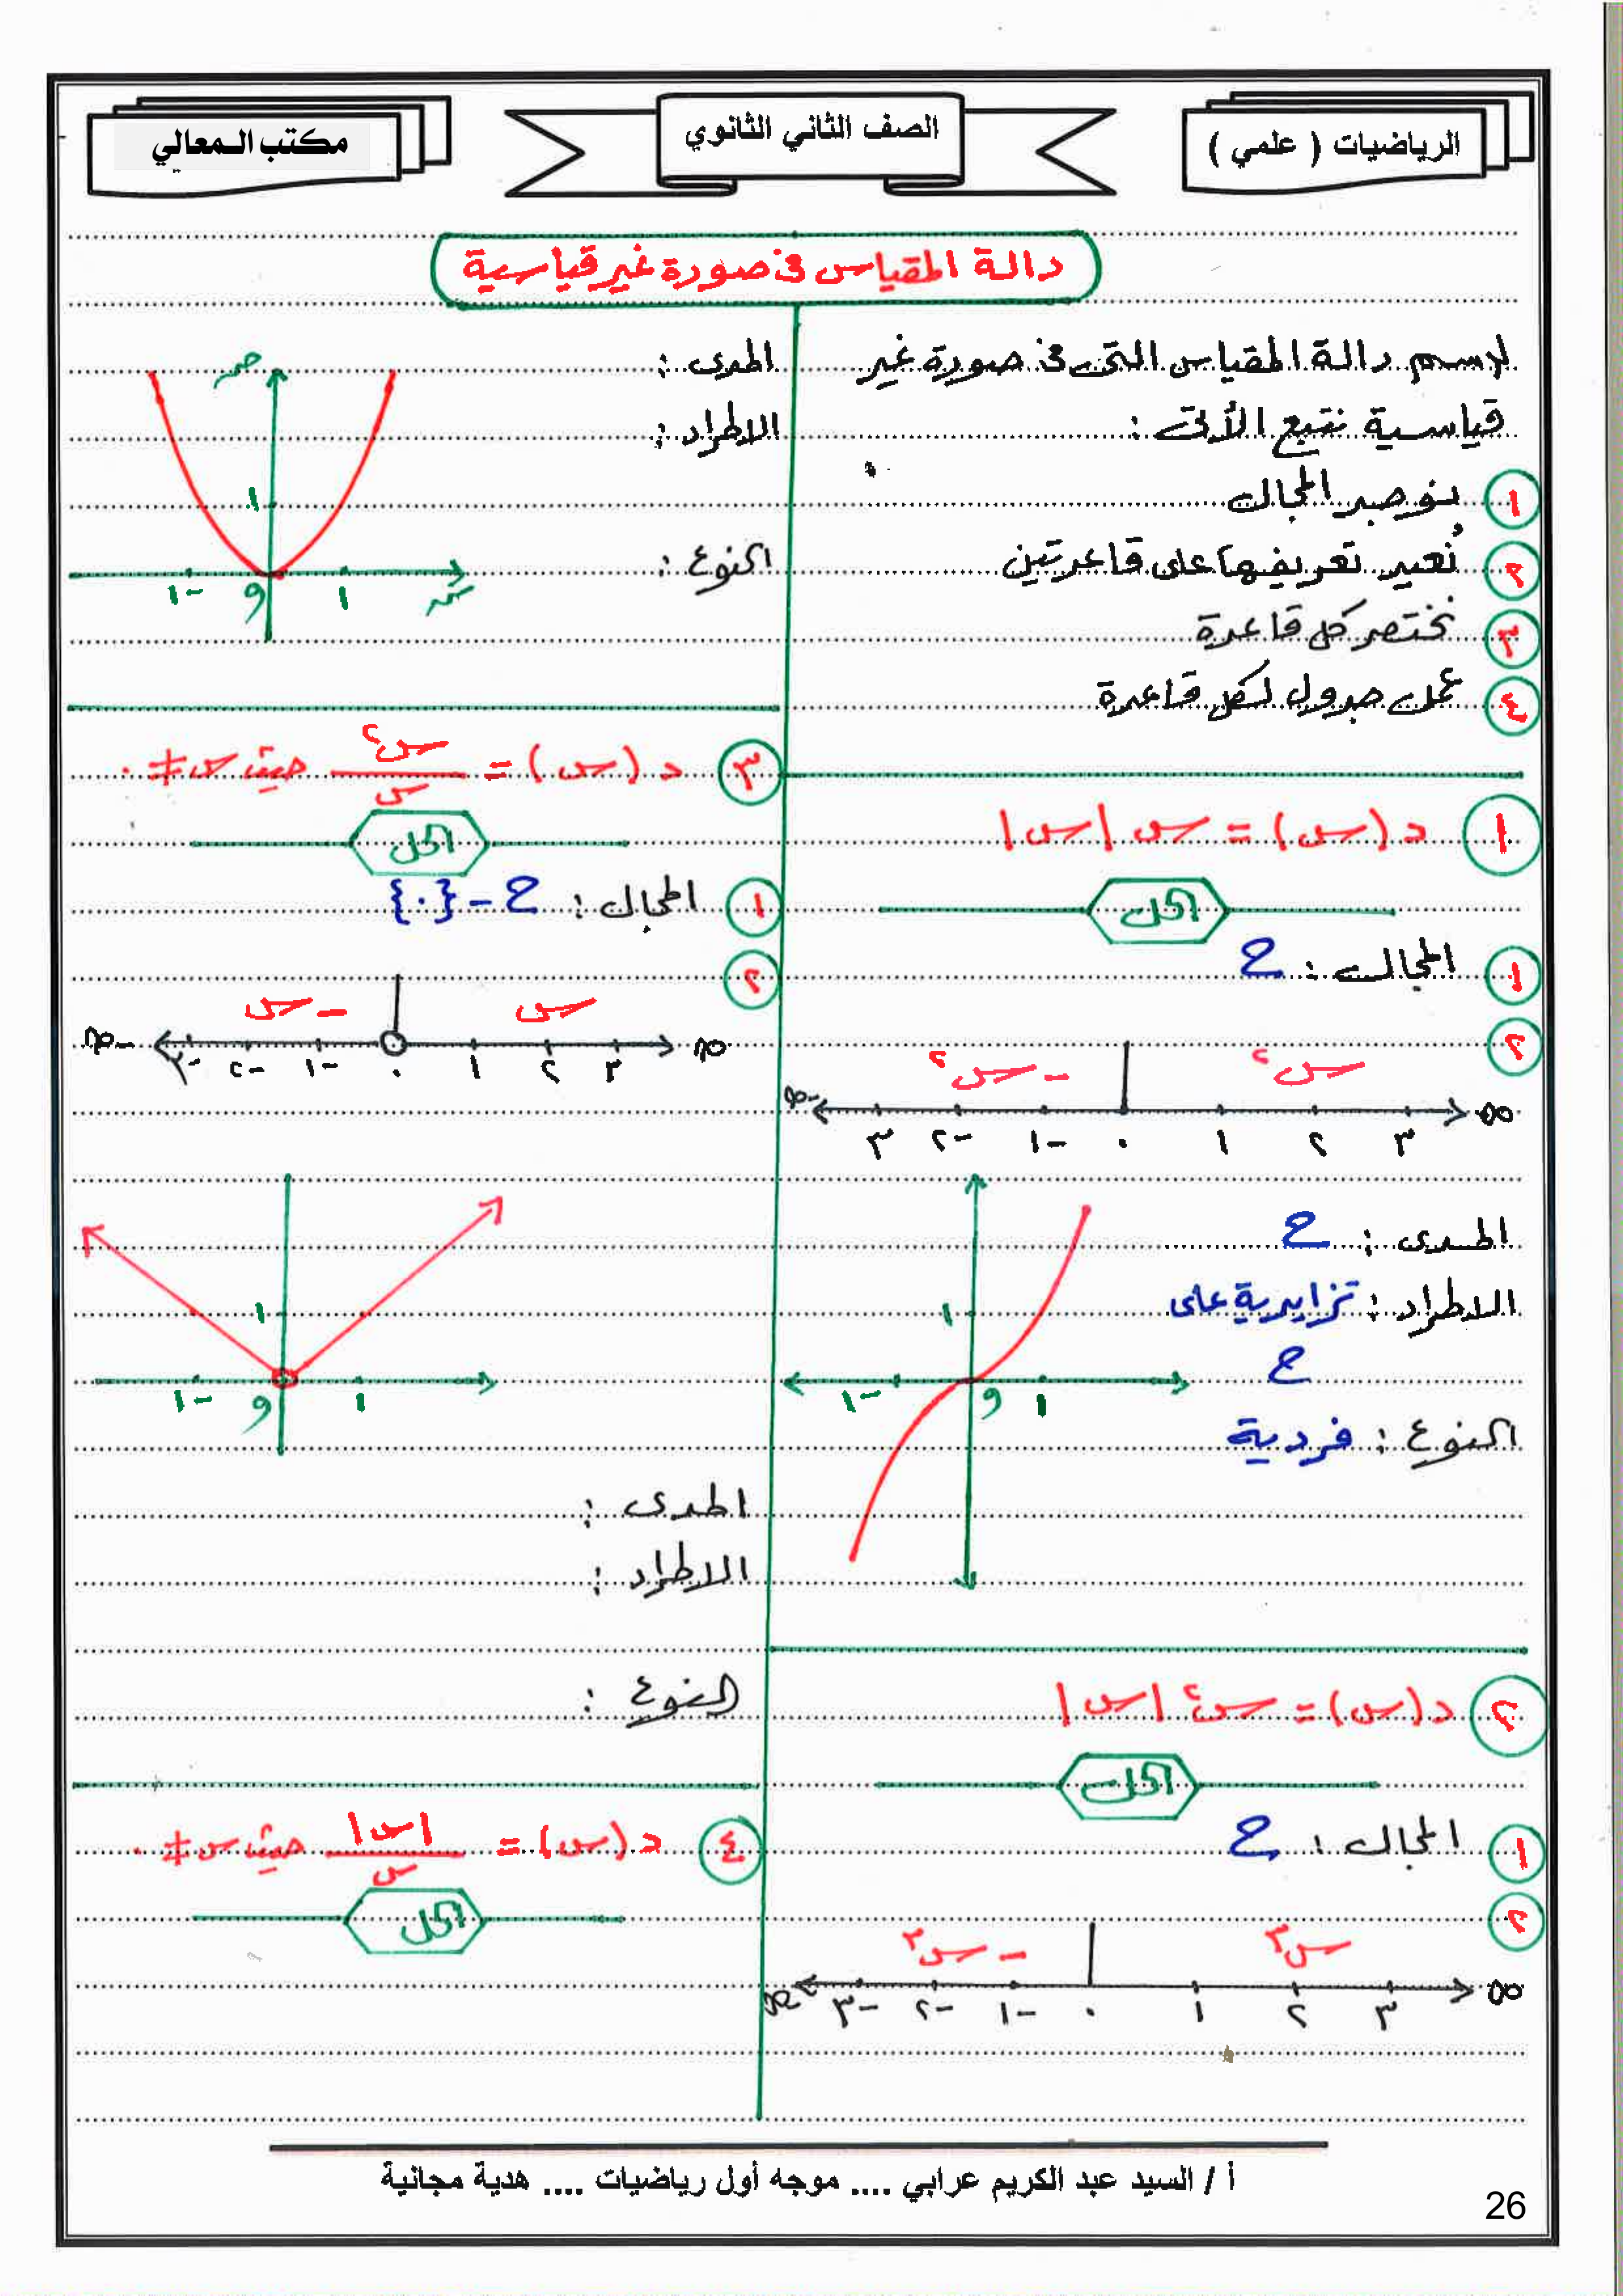 الرياضيات ( علمي )
الصف الثاني الثانوي
مكتب المعالي
دالة المقياس في صورة غير قياسية
لرسم دالة المقياس التي في صورة غير
قياسية نتبع الآتى :
١ نوجد المجال
٢ نُعيد تعريفها على قاعدتين
٣ نختصر كل قاعدة
٤ عمل جدول لكل قاعدة
١ د (س) = س |س|
الحل
١ المجال : ح
٢
- س٢ س٢
-∞ ٣ -٢ -١ ٠ ١ ٢ ٣ ∞
المدى : ح
الاطراد : تزايدية على
ح
النوع : فردية
١
-١ و ١
٢ د (س) = س٢ |س|
الحل
١ المجال : ح
٢
- س٣ س٣
-∞ -٣ -٢ -١ ٠ ١ ٢ ٣ ∞
المدى :
الاطراد :
النوع :
ص
١
-١ و ١ س
٣ د (س) = س٢ / س حيث س ≠ ٠
الحل
١ المجال : ح - {٠}
٢
- س س
-∞ -٣ -٢ -١ ٠ ١ ٢ ٣ ∞
١
-١ و ١
المدى :
الاطراد :
النوع :
٤ د (س) = |س| / س حيث س ≠ ٠
الحل
أ / السيد عبد الكريم عرابي .... موجه أول رياضيات .... هدية مجانية
26